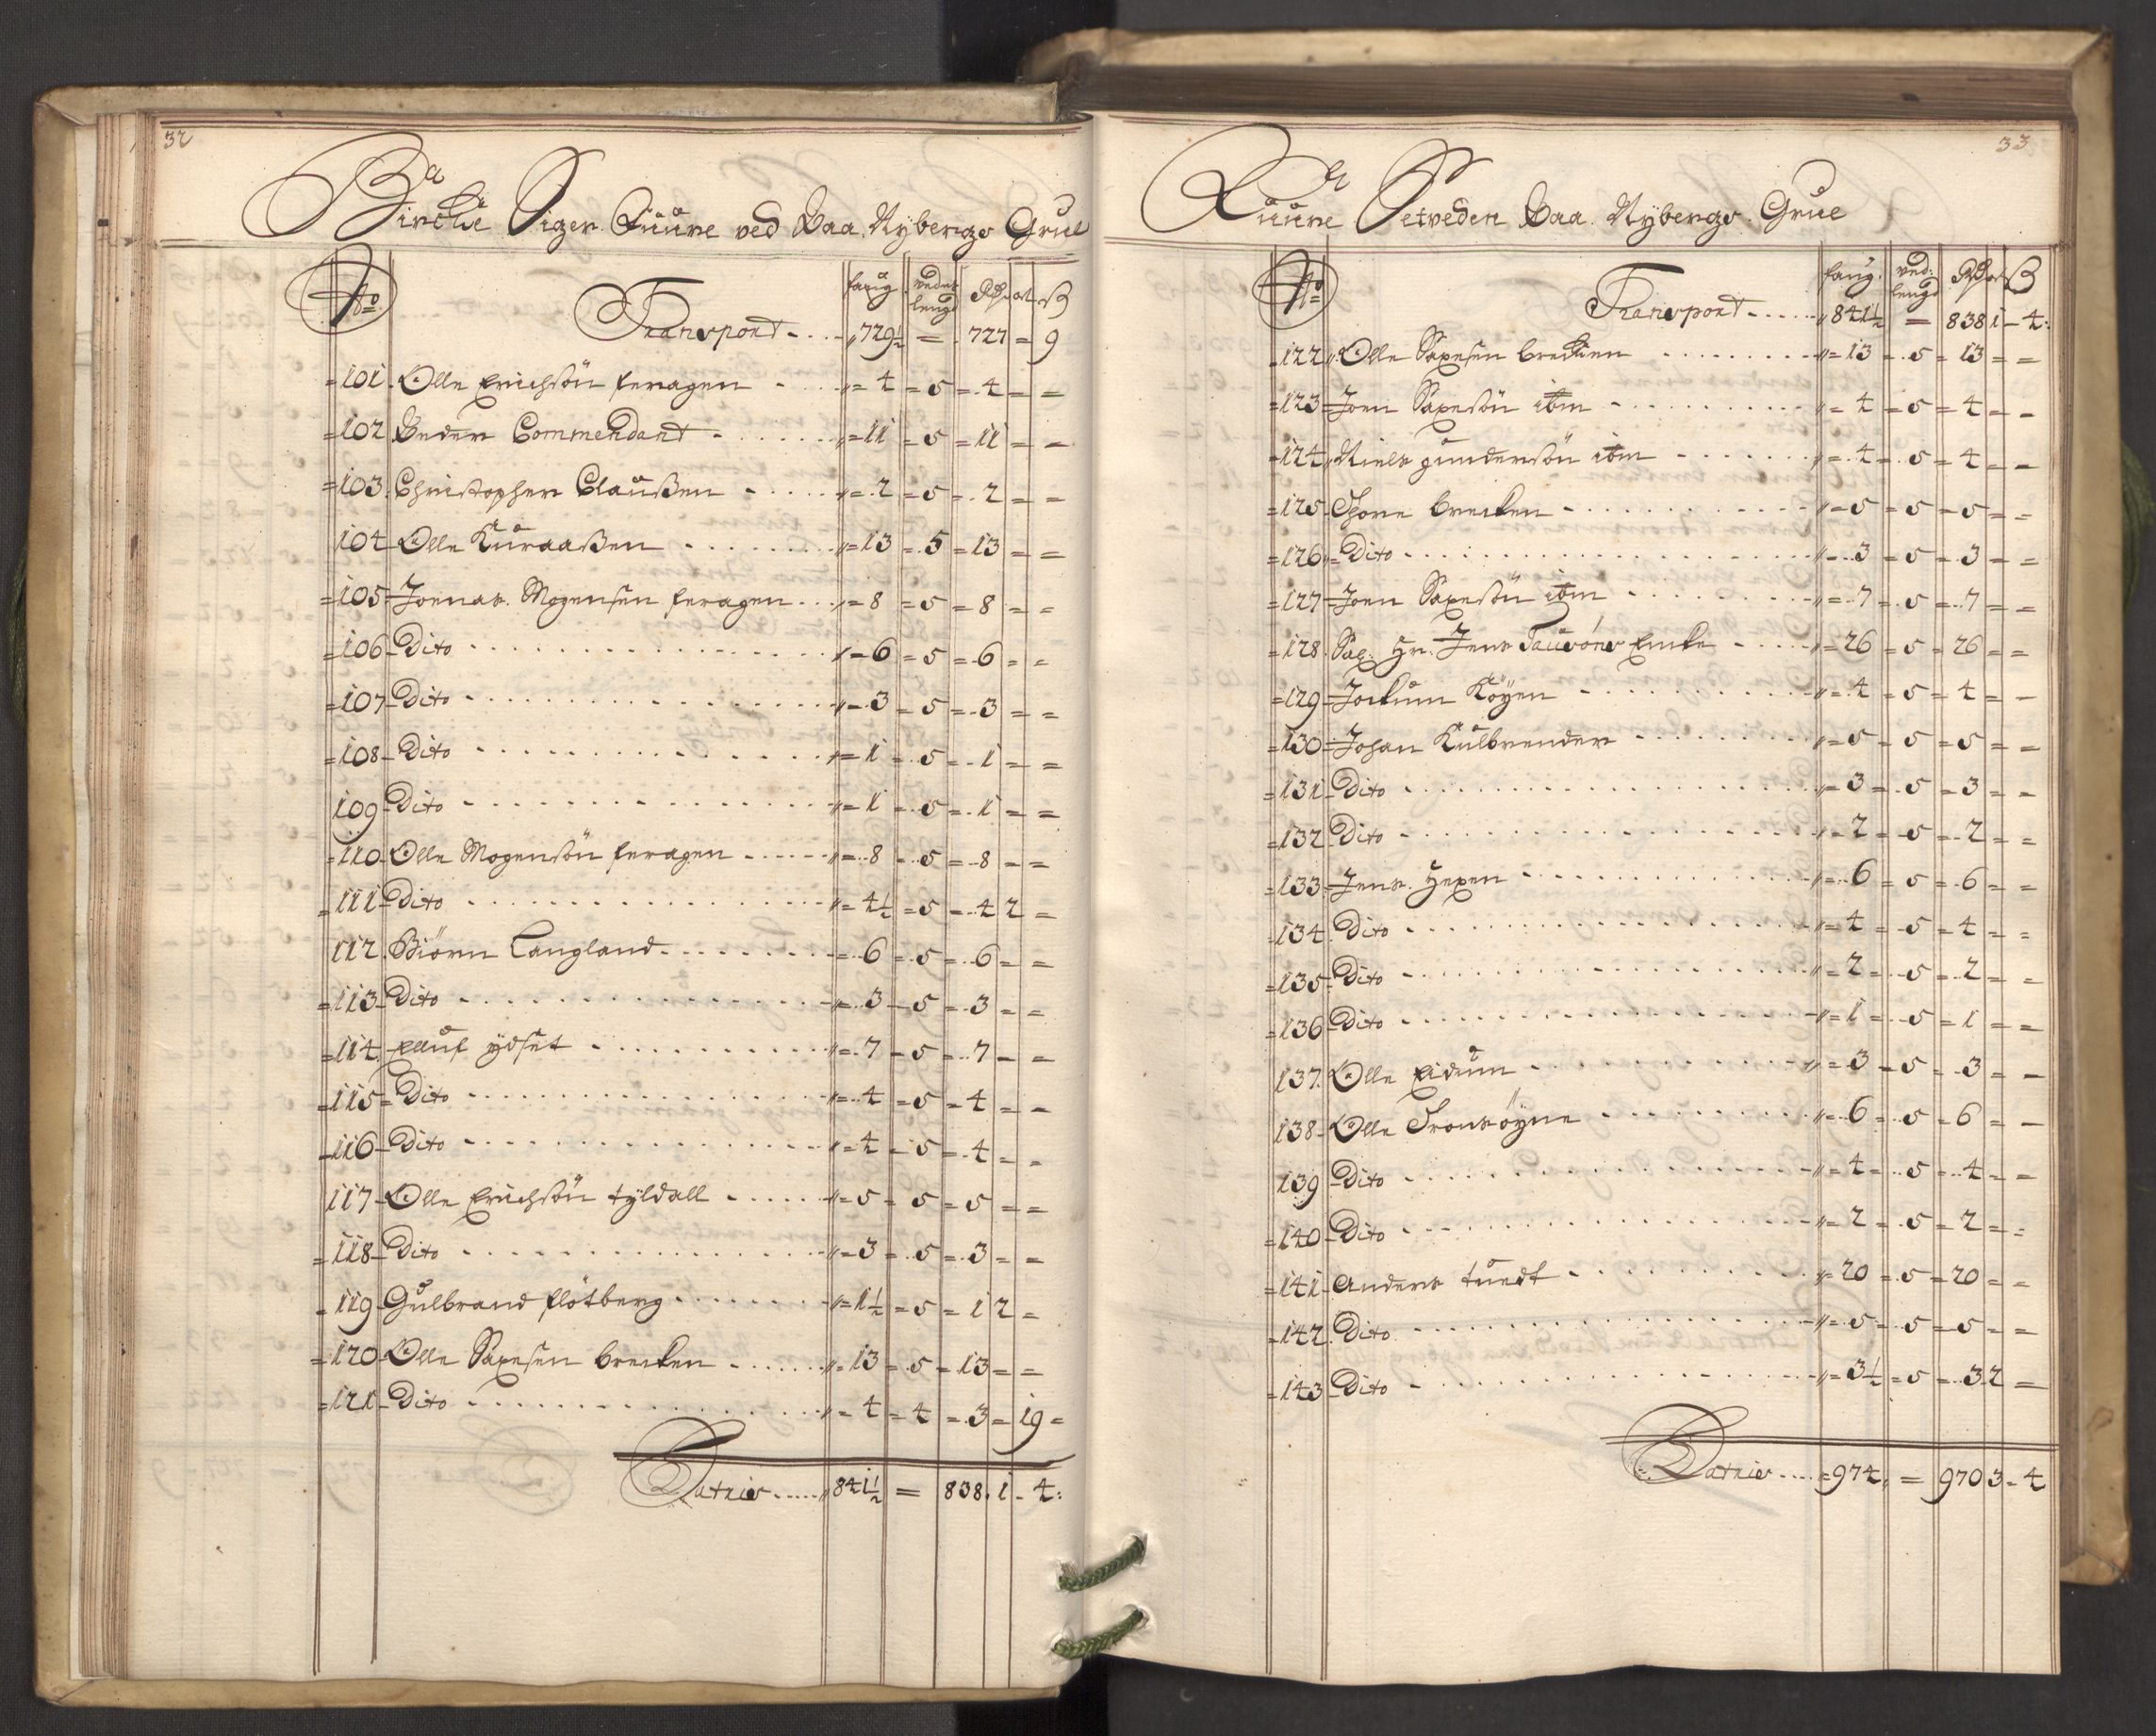 32
Bircke Siger Fuure ved Paa Nybergs Grue
No
faug. vedes lengd Rdr. ort. ß
Transport 729½ = 727 = 9
101 Olle Erichsön feragen 4 = 5 = 4 = =
102 Peder Commendant 11 = 5 = 11 = =
103 Christopher Claußen 2 = 5 = 2 = =
104 Olle Kuraaßen 13 = 5 = 13 = =
105 Joenas Mogensen feragen 8 = 5 = 8 = =
106 Dito 6 = 5 = 6 = =
107 Dito 3 = 5 = 3 = =
108 Dito 1 = 5 = 1 = =
109 Dito 1 = 5 = 1 = =
110 Olle Mogensön feragen 8 = 5 = 8 = =
111 Dito 4½ = 5 = 4 2 =
112 Biörn Langland 6 = 5 = 6 = =
113 Dito 3 = 5 = 3 = =
114 ydset 7 = 5 = 7 = =
115 Dito 4 = 5 = 4 = =
116 Dito 4 = 5 = 4 = =
117 Olle Erichsön tyldall 5 = 5 = 5 = =
118 Dito 3 = 5 = 3 = =
119 Gulbrand flötberg 1½ = 5 = 1 2 =
120 Olle Saxesen brecken 13 = 5 = 13 = =
121 Dito 4 = 4 = 3 = 19 =
Latries 841½ = 838 1 - 4
33
Fuure Setveden Paa Nybergs Grue
No
faug. ved: lengd Rdr ort ß
Transport 841½ = 838 1 - 4
122 Olle Saxesen brecken 13 = 5 = 13 = =
123 Joen Saxesön itm 4 = 5 = 4 = =
124 Niels gundersön itm 4 = 5 = 4 = =
125 Thore brecken 5 = 5 = 5 = =
126 Dito 3 = 5 = 3 = =
127 Joen Saxesön itm 7 = 5 = 7 = =
128 Sal. Hr. Jens Encke 26 = 5 = 26 = =
129 Jockum Köyen 4 = 5 = 4 = =
130 Johan Kulbrender 5 = 5 = 5 = =
131 Dito 3 = 5 = 3 = =
132 Dito 2 = 5 = 2 = =
133 Jens Hexen 6 = 5 = 6 = =
134 Dito 4 = 5 = 4 = =
135 Dito 2 = 5 = 2 = =
136 Dito 1 = 5 = 1 = =
137 Olle Eidum 3 = 5 = 3 = =
138 Olle Tronsöyne 6 = 5 = 6 = =
139 Dito 4 = 5 = 4 = =
140 Dito 2 = 5 = 2 = =
141 Anders tuedt 20 = 5 = 20 = =
142 Dito 5 = 5 = 5 = =
143 Dito 3½ = 5 = 3 2 =
Latries 974 = 970 3 - 4